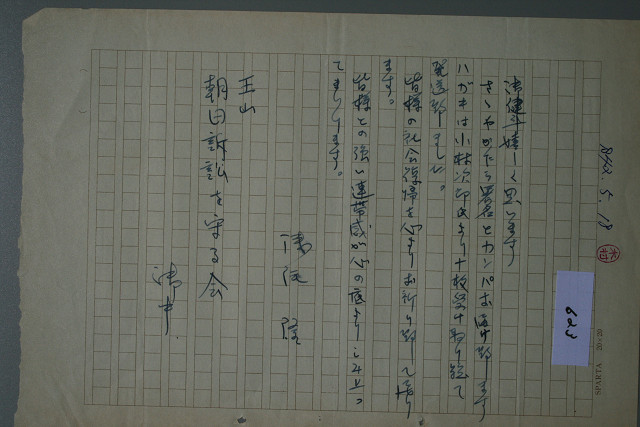 S42. 5. 18
623
御健斗嬉しく思います
さゝやかたら署名とカンパお届け致します
ハガキは小林次郎氏より十枚受け取り総て
発送致しました。
皆様の社会復帰を心よりお祈り致して居り
ます。
皆様との強い連帯感が心の底より
てまいります。
隆
玉山
朝日訴訟を守る会
御中
SPARTA 20×20